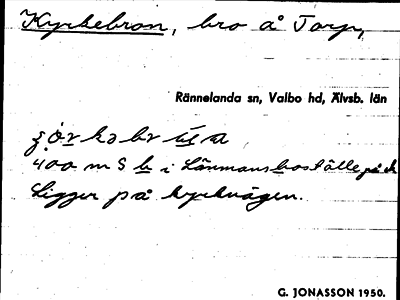 Kyrkebron, bro å Torp,
Rännelanda sn, Valbo hd, Älvsb. län
400 m S b i Länmansboställe på
Ligger på kyrkvägen.
G. JONASSON 1950.